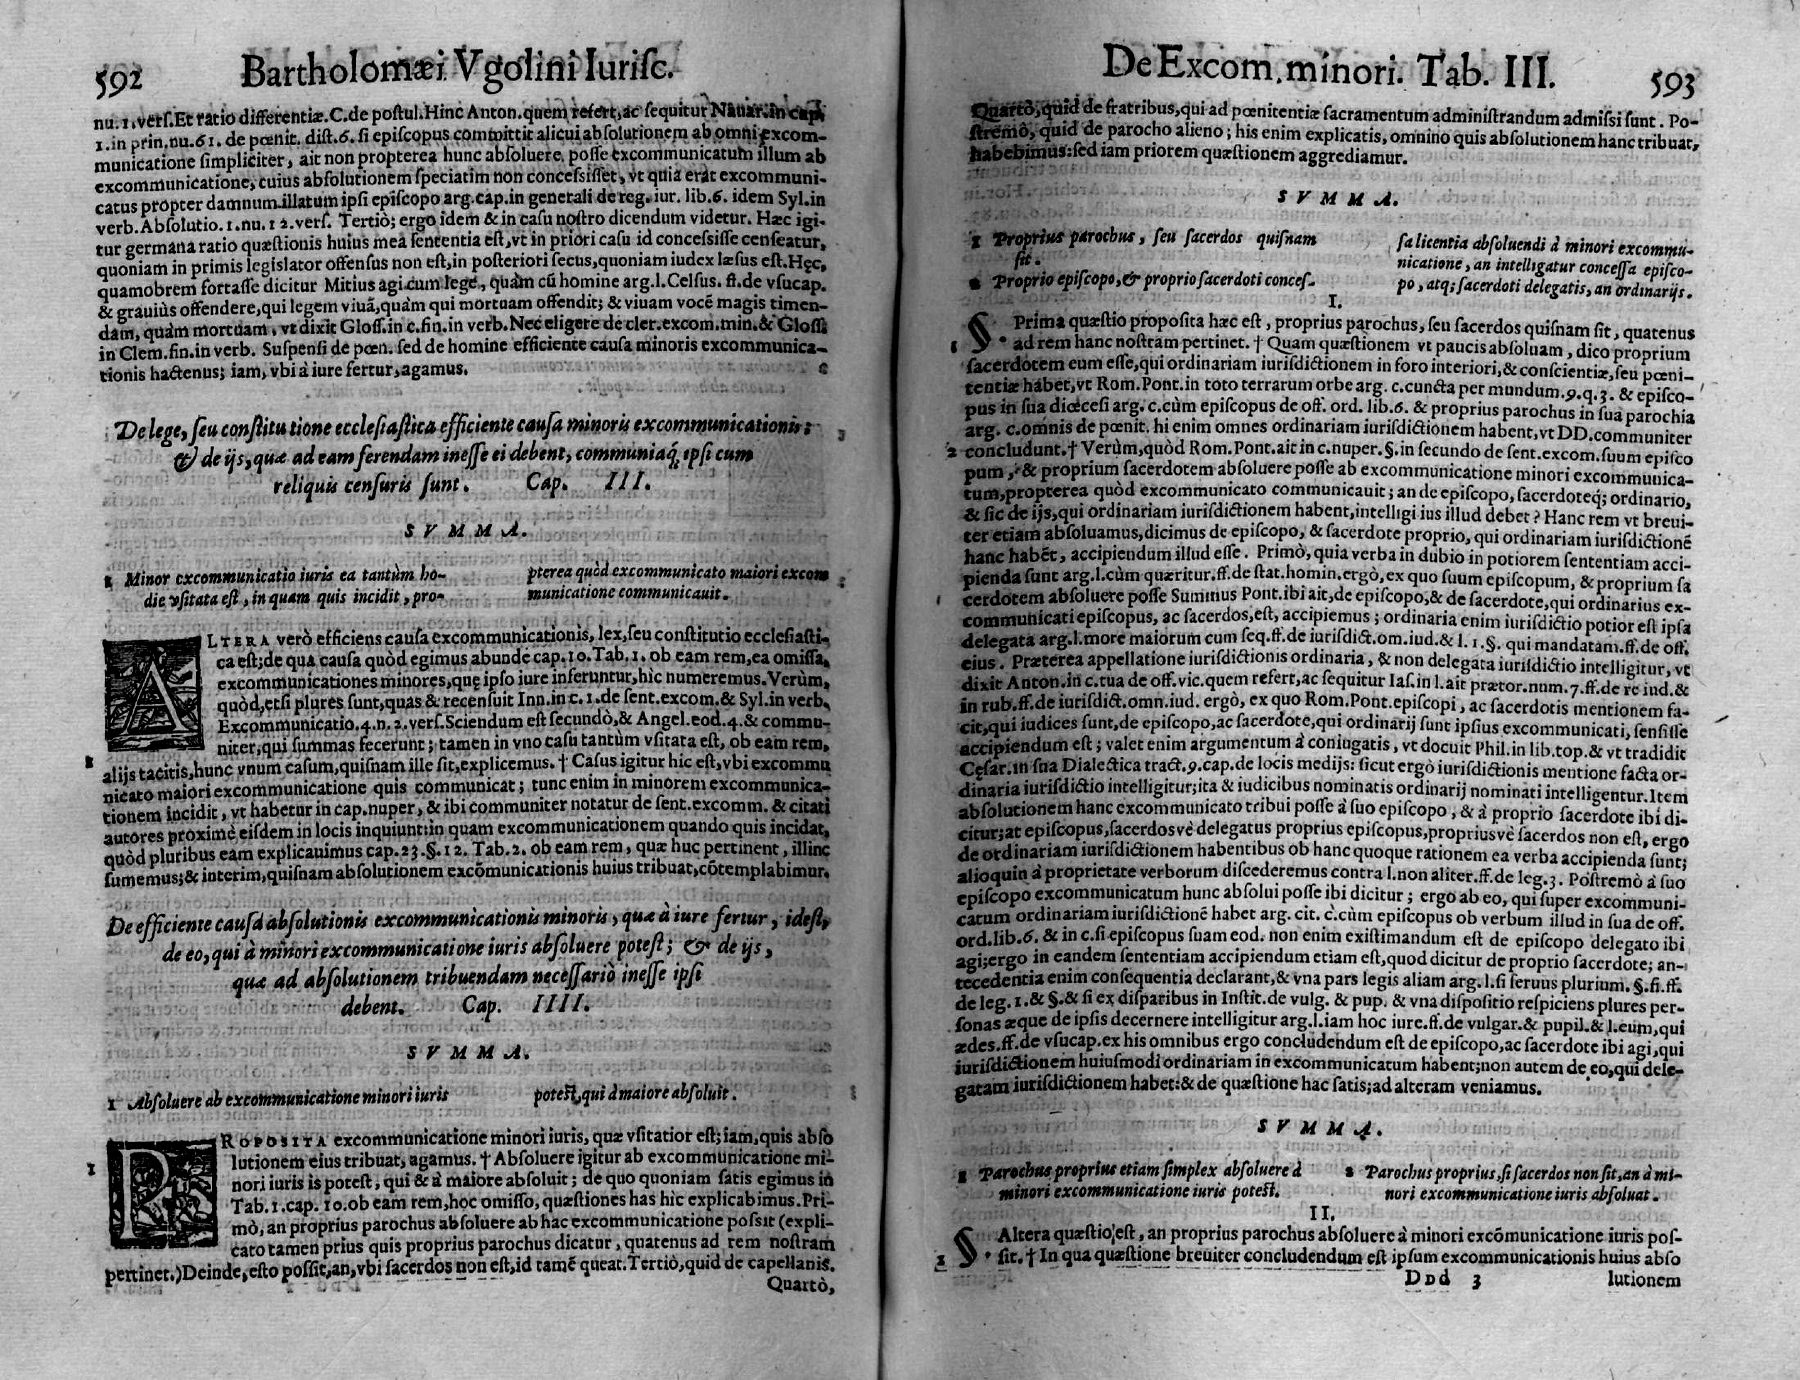 592
Bartholomæi Vgolini Iurisc.
nu. 1. vers. Et ratio differentiæ. C. de postul. Hinc Anton. quem refert, ac sequitur Nauar. in cap.
1. in prin. nu. 61. de pœnit. dist. 6. si episcopus committit alicui absolutionem ab omni excom-
municatione simpliciter, ait non propterea hunc absoluere posse excommunicatum illum ab
excommunicatione, cuius absolutionem speciatim non concessisset, vt quia erat excommuni-
catus propter damnum illatum ipsi episcopo arg. cap. in generali de reg. iur. lib. 6. idem Syl. in
verb. Absolutio. 1. nu. 12. vers. Tertiò; ergo idem & in casu nostro dicendum videtur. Hæc igi-
tur germana ratio quæstionis huius mea sententia est, vt in priori casu id concessisse censeatur,
quoniam in primis legislator offensus non est, in posteriori secus, quoniam iudex læsus est. Hęc,
quamobrem fortasse dicitur Mitius agi cum lege, quàm cũ homine arg. l. Celsus. ff. de vsucap.
& grauiùs offendere, qui legem viuã, quàm qui mortuam offendit; & viuam vocẽ magis timen-
dam, quàm mortuam, vt dixit Gloss. in c. fin. in verb. Nec eligere de cler. excom. min. & Gloss.
in Clem. fin. in verb. Suspensi de pœn. sed de homine efficiente causa minoris excommunica-
tionis hactenus; iam, vbi à iure fertur, agamus.
De lege, seu constitutione ecclesiastica efficiente causa minoris excommunicationis:
& de ijs, quæ ad eam ferendam inesse ei debent, communiaq́; ipsi cum
reliquis censuris sunt. Cap. III.
SVMMA.
1 Minor excommunicatio iuris ea tantùm ho-
die vsitata est, in quam quis incidit, pro-
pterea quòd excommunicato maiori excom
municatione communicauit.
ALTERA verò efficiens causa excommunicationis, lex, seu constitutio ecclesiasti-
ca est; de qua causa quòd egimus abunde cap. 10. Tab. 1. ob eam rem, ea omissa,
excommunicationes minores, quę ipso iure inferuntur, hic numeremus. Verùm,
quòd, etsi plures sunt, quas & recensuit Inn. in c. 1. de sent. excom. & Syl. in verb.
Excommunicatio. 4. n. 2. vers. Sciendum est secundò, & Angel. eod. 4. & commu-
niter, qui summas fecerunt; tamen in vno casu tantùm vsitata est, ob eam rem,
1 alijs tacitis, hunc vnum casum, quisnam ille sit, explicemus. † Casus igitur hic est, vbi excommu
nicato maiori excommunicatione quis communicat; tunc enim in minorem excommunica-
tionem incidit, vt habetur in cap. nuper, & ibi communiter notatur de sent. excomm. & citati
autores proximè eisdem in locis inquiunt: in quam excommunicationem quando quis incidat,
quòd pluribus eam explicauimus cap. 23. §. 12. Tab. 2. ob eam rem, quæ huc pertinent, illinc
sumemus; & interim, quisnam absolutionem excõmunicationis huius tribuat, cõtemplabimur.
De efficiente causa absolutionis excommunicationis minoris, quæ à iure fertur, idest,
de eo, qui à minori excommunicatione iuris absoluere potest; & de ijs,
quæ ad absolutionem tribuendam necessariò inesse ipsi
debent. Cap. IIII.
SVMMA.
1 Absoluere ab excommunicatione minori iuris
potest, qui à maiore absoluit.
PROPOSITA excommunicatione minori iuris, quæ vsitatior est; iam, quis abso
1 lutionem eius tribuat, agamus. † Absoluere igitur ab excommunicatione mi-
nori iuris is potest, qui & à maiore absoluit; de quo quoniam satis egimus in
Tab. 1. cap. 10. ob eam rem, hoc omisso, quæstiones has hic explicabimus. Pri-
mò, an proprius parochus absoluere ab hac excommunicatione possit (expli-
cato tamen prius quis proprius parochus dicatur, quatenus ad rem nostram
pertinet.) Deinde, esto possit, an, vbi sacerdos non est, id tamẽ queat. Tertiò, quid de capellanis.
Quartò,
De Excom. minori. Tab. III.
593
Quartò, quid de fratribus, qui ad pœnitentiæ sacramentum administrandum admissi sunt. Po-
stremò, quid de parocho alieno; his enim explicatis, omnino quis absolutionem hanc tribuat,
habebimus: sed iam priorem quæstionem aggrediamur.
SVMMA.
1 Proprius parochus, seu sacerdos quisnam
sit.
2 Proprio episcopo, & proprio sacerdoti conces-
sa licentia absoluendi à minori excommu-
nicatione, an intelligatur concessa episco-
po, atq; sacerdoti delegatis, an ordinarijs.
I.
§. Prima quæstio proposita hæc est, proprius parochus, seu sacerdos quisnam sit, quatenus
1 ad rem hanc nostram pertinet. † Quam quæstionem vt paucis absoluam, dico proprium
sacerdotem eum esse, qui ordinariam iurisdictionem in foro interiori, & conscientiæ, seu pœni-
tentiæ habet, vt Rom. Pont. in toto terrarum orbe arg. c. cuncta per mundum. 9. q. 3. & episco-
pus in sua diœcesi arg. c. cùm episcopus de off. ord. lib. 6. & proprius parochus in sua parochia
arg. c. omnis de pœnit. hi enim omnes ordinariam iurisdictionem habent, vt DD. communiter
2 concludunt. † Verùm, quòd Rom. Pont. ait in c. nuper. §. in secundo de sent. excom. suum episco
pum, & proprium sacerdotem absoluere posse ab excommunicatione minori excommunica-
tum, propterea quòd excommunicato communicauit; an de episcopo, sacerdoteq́; ordinario,
& sic de ijs, qui ordinariam iurisdictionem habent, intelligi ius illud debet? Hanc rem vt breui-
ter etiam absoluamus, dicimus de episcopo, & sacerdote proprio, qui ordinariam iurisdictionẽ
hanc habẽt, accipiendum illud esse. Primò, quia verba in dubio in potiorem sententiam acci-
pienda sunt arg. l. cùm quæritur. ff. de stat. homin. ergò, ex quo suum episcopum, & proprium sa
cerdotem absoluere posse Summus Pont. ibi ait, de episcopo, & de sacerdote, qui ordinarius ex-
communicati episcopus, ac sacerdos, est, accipiemus; ordinaria enim iurisdictio potior est ipsa
delegata arg. l. more maiorum cum seq. ff. de iurisdict. om. iud. & l. 1. §. qui mandatam. ff. de off.
eius. Præterea appellatione iurisdictionis ordinaria, & non delegata iurisdictio intelligitur, vt
dixit Anton. in c. tua de off. vic. quem refert, ac sequitur Ias. in l. ait prætor. num. 7. ff. de re iud. &
in rub. ff. de iurisdict. omn. iud. ergò, ex quo Rom. Pont. episcopi, ac sacerdotis mentionem fa-
cit, qui iudices sunt, de episcopo, ac sacerdote, qui ordinarij sunt ipsius excommunicati, sensisse
accipiendum est; valet enim argumentum à coniugatis, vt docuit Phil. in lib. top. & vt tradidit
Cęsar. in sua Dialectica tract. 9. cap. de locis medijs: sicut ergò iurisdictionis mentione facta or-
dinaria iurisdictio intelligitur; ita & iudicibus nominatis ordinarij nominati intelligentur. Item
absolutionem hanc excommunicato tribui posse à suo episcopo, & à proprio sacerdote ibi di-
citur; at episcopus, sacerdosvè delegatus proprius episcopus, propriusvè sacerdos non est, ergo
de ordinariam iurisdictionem habentibus ob hanc quoque rationem ea verba accipienda sunt;
alioquin à proprietate verborum discederemus contra l. non aliter. ff. de leg. 3. Postremò à suo
episcopo excommunicatum hunc absolui posse ibi dicitur; ergo ab eo, qui super excommuni-
catum ordinariam iurisdictionẽ habet arg. cit. c. cùm episcopus ob verbum illud in sua de off.
ord. lib. 6. & in c. si episcopus suam eod. non enim existimandum est de episcopo delegato ibi
agi; ergo in eandem sententiam accipiendum etiam est, quod dicitur de proprio sacerdote; an-
tecedentia enim consequentia declarant, & vna pars legis aliam arg. l. si seruus plurium. §. fi. ff.
de leg. 1. & §. & si ex disparibus in Instit. de vulg. & pup. & vna dispositio respiciens plures per-
sonas æque de ipsis decernere intelligitur arg. l. iam hoc iure. ff. de vulgar. & pupil. & l. eum, qui
ædes. ff. de vsucap. ex his omnibus ergo concludendum est de episcopo, ac sacerdote ibi agi, qui
iurisdictionem huiusmodi ordinariam in excommunicatum habent; non autem de eo, qui dele-
gatam iurisdictionem habet: & de quæstione hac satis; ad alteram veniamus.
SVMMA.
1 Parochus proprius etiam simplex absoluere à
minori excommunicatione iuris potest.
2 Parochus proprius, si sacerdos non sit, an à mi-
nori excommunicatione iuris absoluat.
II.
§. Altera quæstio est, an proprius parochus absoluere à minori excõmunicatione iuris pos-
1 sit. † In qua quæstione breuiter concludendum est ipsum excommunicationis huius abso
Ddd 3
lutionem